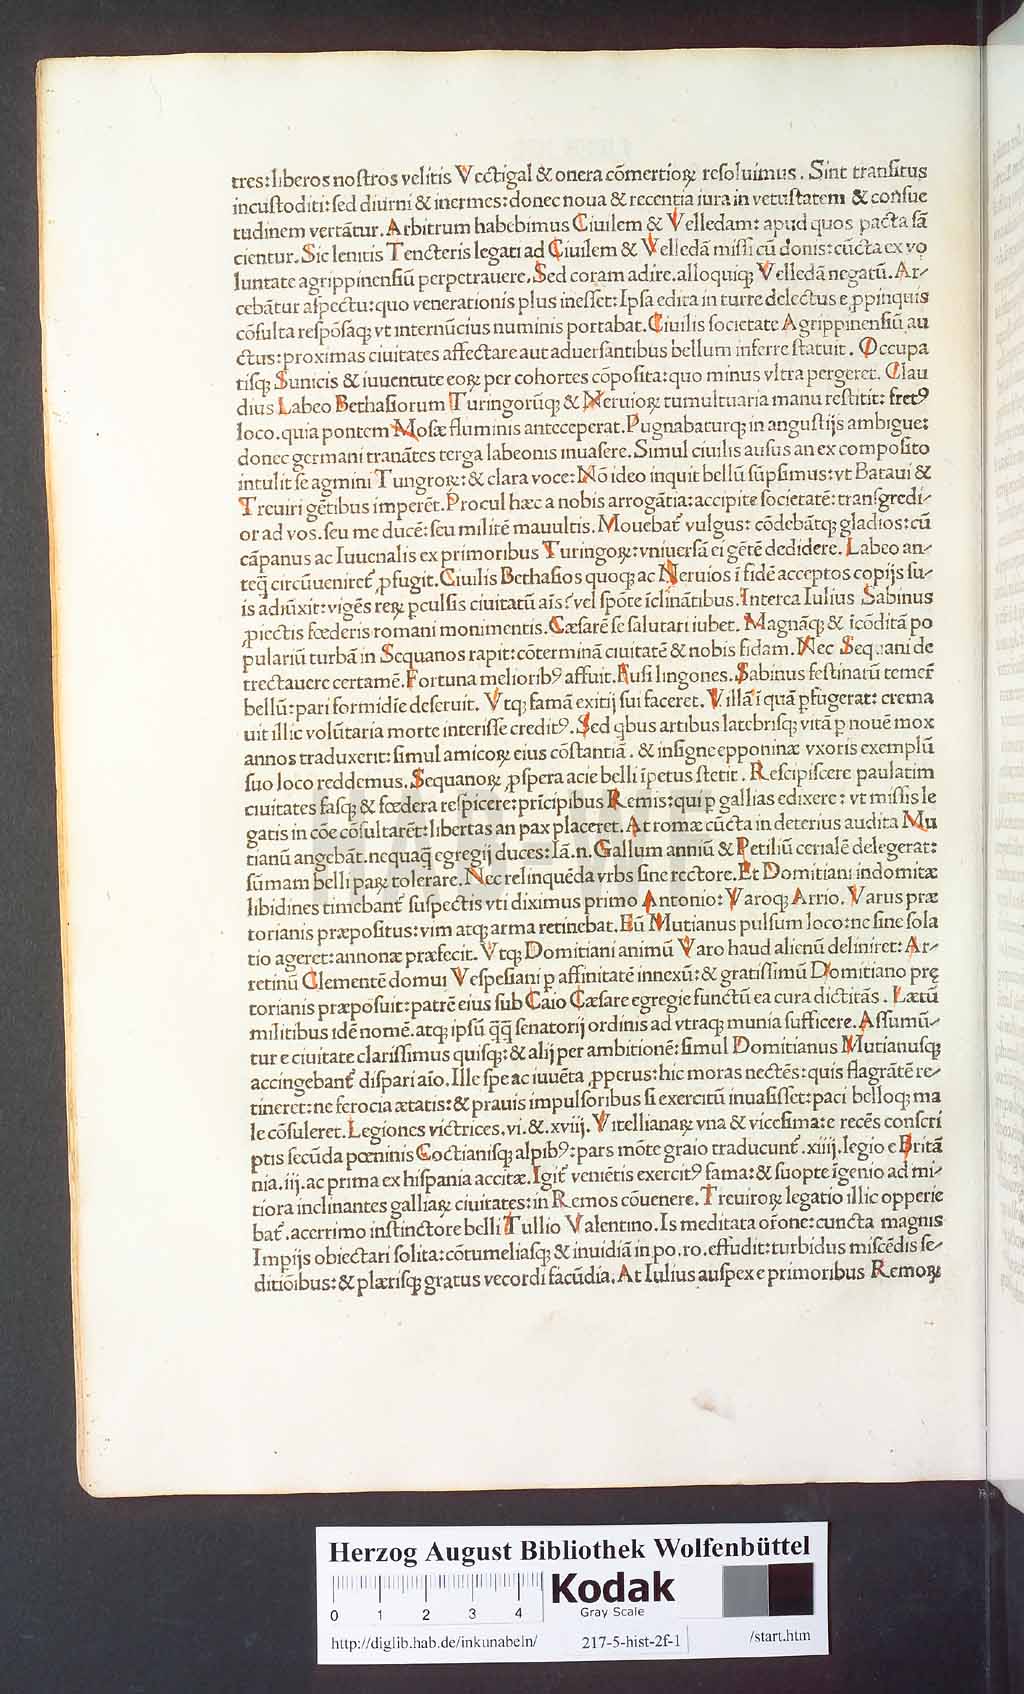 tres: liberos nostros velitis Vectigal & onera cōmertioꝝ resoluimus. Sint transitus
incustoditi: sed diurni & inermes: donec noua & recentia iura in vetustatem & consue
tudinem vertātur. Arbitrum habebimus Ciuilem & Velledam: apud quos pacta sā
cientur. Sic lenitis Tencteris legati ad Ciuilem & Velledā missi cū donis: cūcta ex vo
luntate agrippinensiū perpetrauere. Sed coram adire. alloquiqꝫ Velledā negatū. Ar-
cebātur aspectu: quo venerationis plus inesset: Ipsa edita in turre delectus e ꝓpinquis
cōsulta respōsaqꝫ vt internūcius numinis portabat. Ciuilis societate Agrippinensiū au
ctus: proximas ciuitates affectare aut aduersantibus bellum inferre statuit. Occupa
tisqꝫ Sunicis & iuuentute eoꝝ per cohortes cōposita: quo minus vltra pergeret. Clau
dius Labeo Bethasiorum Turingorūqꝫ & Neruioꝝ tumultuaria manu restitit: fretꝰ
loco. quia pontem Mosæ fluminis anteceperat. Pugnabaturqꝫ in angustijs ambigue:
donec germani tranātes terga labeonis inuasere. Simul ciuilis ausus an ex composito
intulit se agmini Tungroꝝ: & clara voce: Nō ideo inquit bellū sūpsimus: vt Bataui &
Treuiri gētibus imperēt. Procul hæc a nobis arrogātia: accipite societatē: transgredi-
or ad vos. seu me ducē: seu militē mauultis. Mouebat᷑ vulgus: cōdebātqꝫ gladios: cū
cāpanus ac Iuuenalis ex primoribus Turingoꝝ: vniuersā ei gētē dedidere. Labeo an-
teq̄ circūueniret᷑ ꝓfugit. Ciuilis Bethasios quoqꝫ ac Neruios ī fidē acceptos copijs su-
is adiūxit: vigēs reꝝ ꝑculsis ciuitatū aīs: vel spōte īclinātibus. Interea Iulius Sabinus
ꝓiectis fœderis romani monimentis. Cæsarē se salutari iubet. Magnāqꝫ & īcōditā po
pulariū turbā in Sequanos rapit: cōterminā ciuitatē & nobis fidam. Nec Sequani de
trectauere certamē. Fortuna melioribꝰ affuit. Fusi lingones. Sabinus festinatū temer᷑
bellū: pari formidīe deseruit. Vtqꝫ famā exitij sui faceret. Villā ī quā ꝑfugerat: crema
uit illic volūtaria morte interisse creditꝰ. Sed qͥbus artibus latebrisqꝫ vitā ꝑ nouē mox
annos traduxerit: simul amicoꝝ eius cōstantiā. & insigne epponinæ vxoris exemplū
suo loco reddemus. Sequanoꝝ ꝓspera acie belli īpetus stetit. Resipiscere paulatim
ciuitates fasqꝫ & fœdera respicere: prīcipibus Remis: qui ꝑ gallias edixere: vt missis le
gatis in cōe cōsultarēt: libertas an pax placeret. At romæ cūcta in deterius audita Mu
tianū angebāt. nequaq̄ egregij duces: Iā .n. Gallum anniū & Petiliū cerialē delegerat:
sūmam belli paꝝ tolerare. Nec relinquēda vrbs sine rectore. Et Domitiani indomitæ
libidines timebant᷑ suspectis vti diximus primo Antonio: Varoqꝫ Arrio. Varus præ
torianis præpositus: vim atqꝫ arma retinebat. Eū Mutianus pulsum loco: ne sine sola
tio ageret: annonæ præfecit. Vtqꝫ Domitiani animū Varo haud alienū deliniret: Ar-
retinū Clementē domui Vespesiani ꝑ affinitatē innexū: & gratissimū Domitiano prę
torianis præposuit: patrē eius sub Caio Cæsare egregie functū ea cura dictitās. Lætū
militibus idē nomē. atqꝫ ipsū q̄q̄ senatorij ordinis ad vtraqꝫ munia sufficere. Assumū-
tur e ciuitate clarissimus quisqꝫ: & alij per ambitionē: simul Domitianus Mutianusqꝫ
accingebant᷑ dispari aīo. Ille spe ac iuuēta ꝓperus: hic moras nectēs: quis flagrātē re-
tineret: ne ferocia ætatis: & prauis impulsoribus si exercitū inuasisset: paci belloqꝫ ma
le cōsuleret. Legiones victrices. vi. & .xviij. Vitellianaꝝ vna & vicesima: e recēs conscri
ptis secūda pœninis Coctianisqꝫ alpibꝰ: pars mōte graio traducunt᷑. xiiij. legio e Britā
nia. iij. ac prima ex hispania accitæ. Igit᷑ veniētis exercitꝰ fama: & suopte īgenio ad mi-
tiora inclinantes galliaꝝ ciuitates: in Remos cōuenere. Treuiroꝝ legatio illic opperie
bat᷑. acerrimo instinctore belli Tullio Valentino. Is meditata orōne: cuncta magnis
Impijs obiectari solita: cōtumeliasqꝫ & inuidiā in po. ro. effudit: turbidus miscēdis se-
ditiōibus: & plærisqꝫ gratus vecordi facūdia. At Iulius auspex e primoribus Remoꝝ
Herzog August Bibliothek Wolfenbüttel
0 1 2 3 4
Kodak
Gray Scale
http://diglib.hab.de/inkunabeln/ 217-5-hist-2f-1 /start.htm
HAB WF